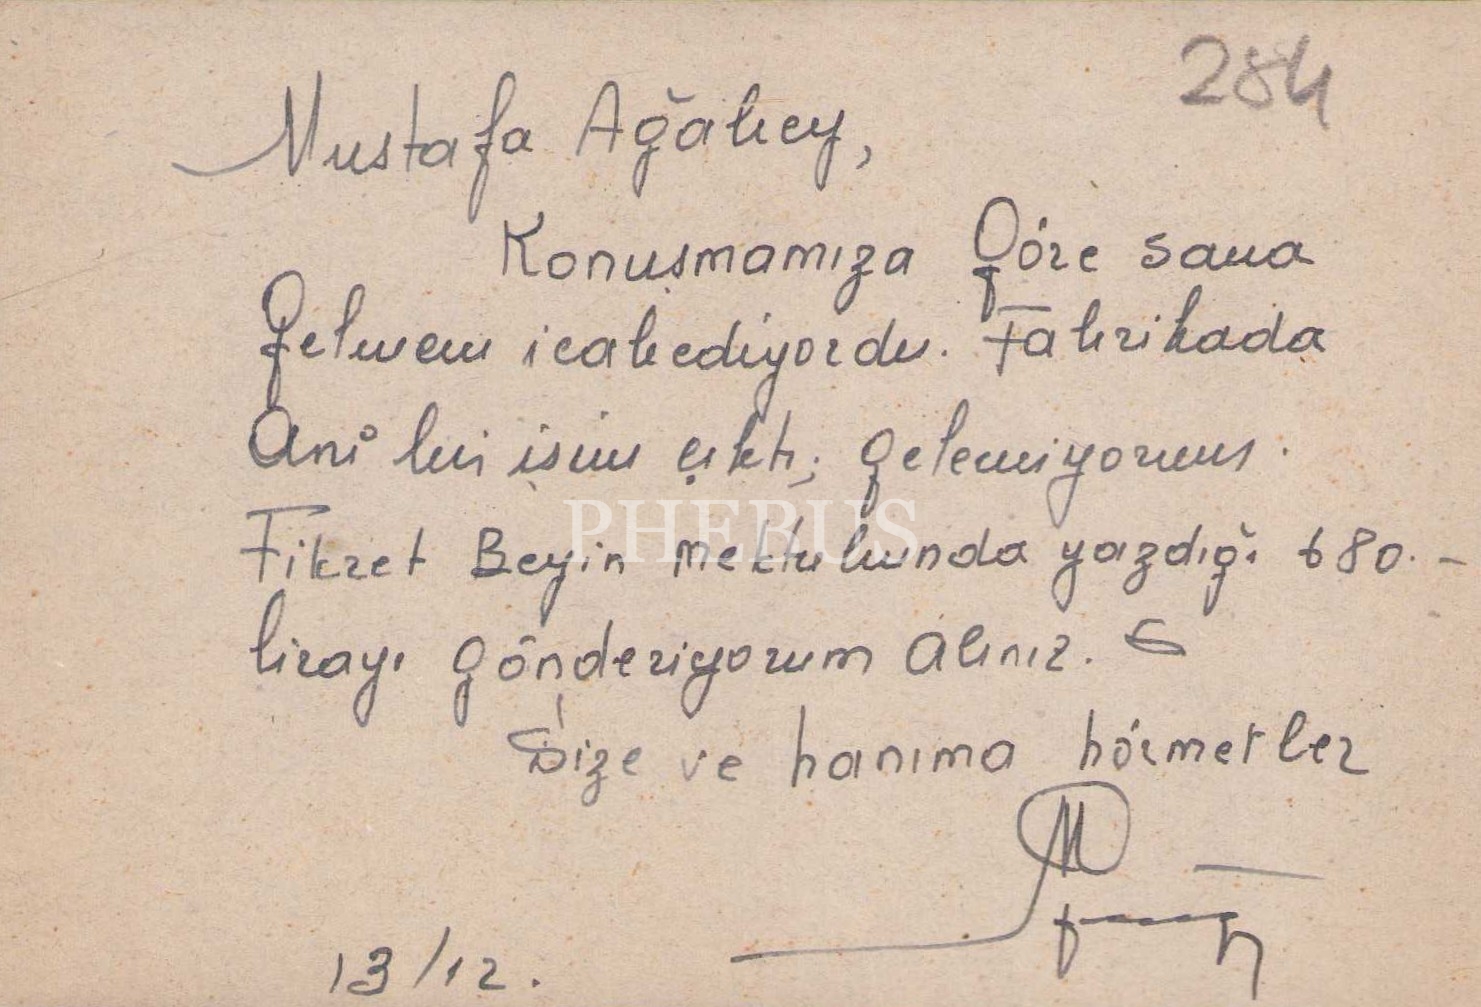 284
Mustafa Ağabey,
Konuşmamıza Göre sana
Gelmem icabediyordu. Fabrikada
Ani bir işim çıktı; gelemiyorum.
Fikret Beyin mektubunda yazdığı 680.-
lirayı gönderiyorum alınız.
Size ve hanıma hörmetler
13/12.
PHEBUS